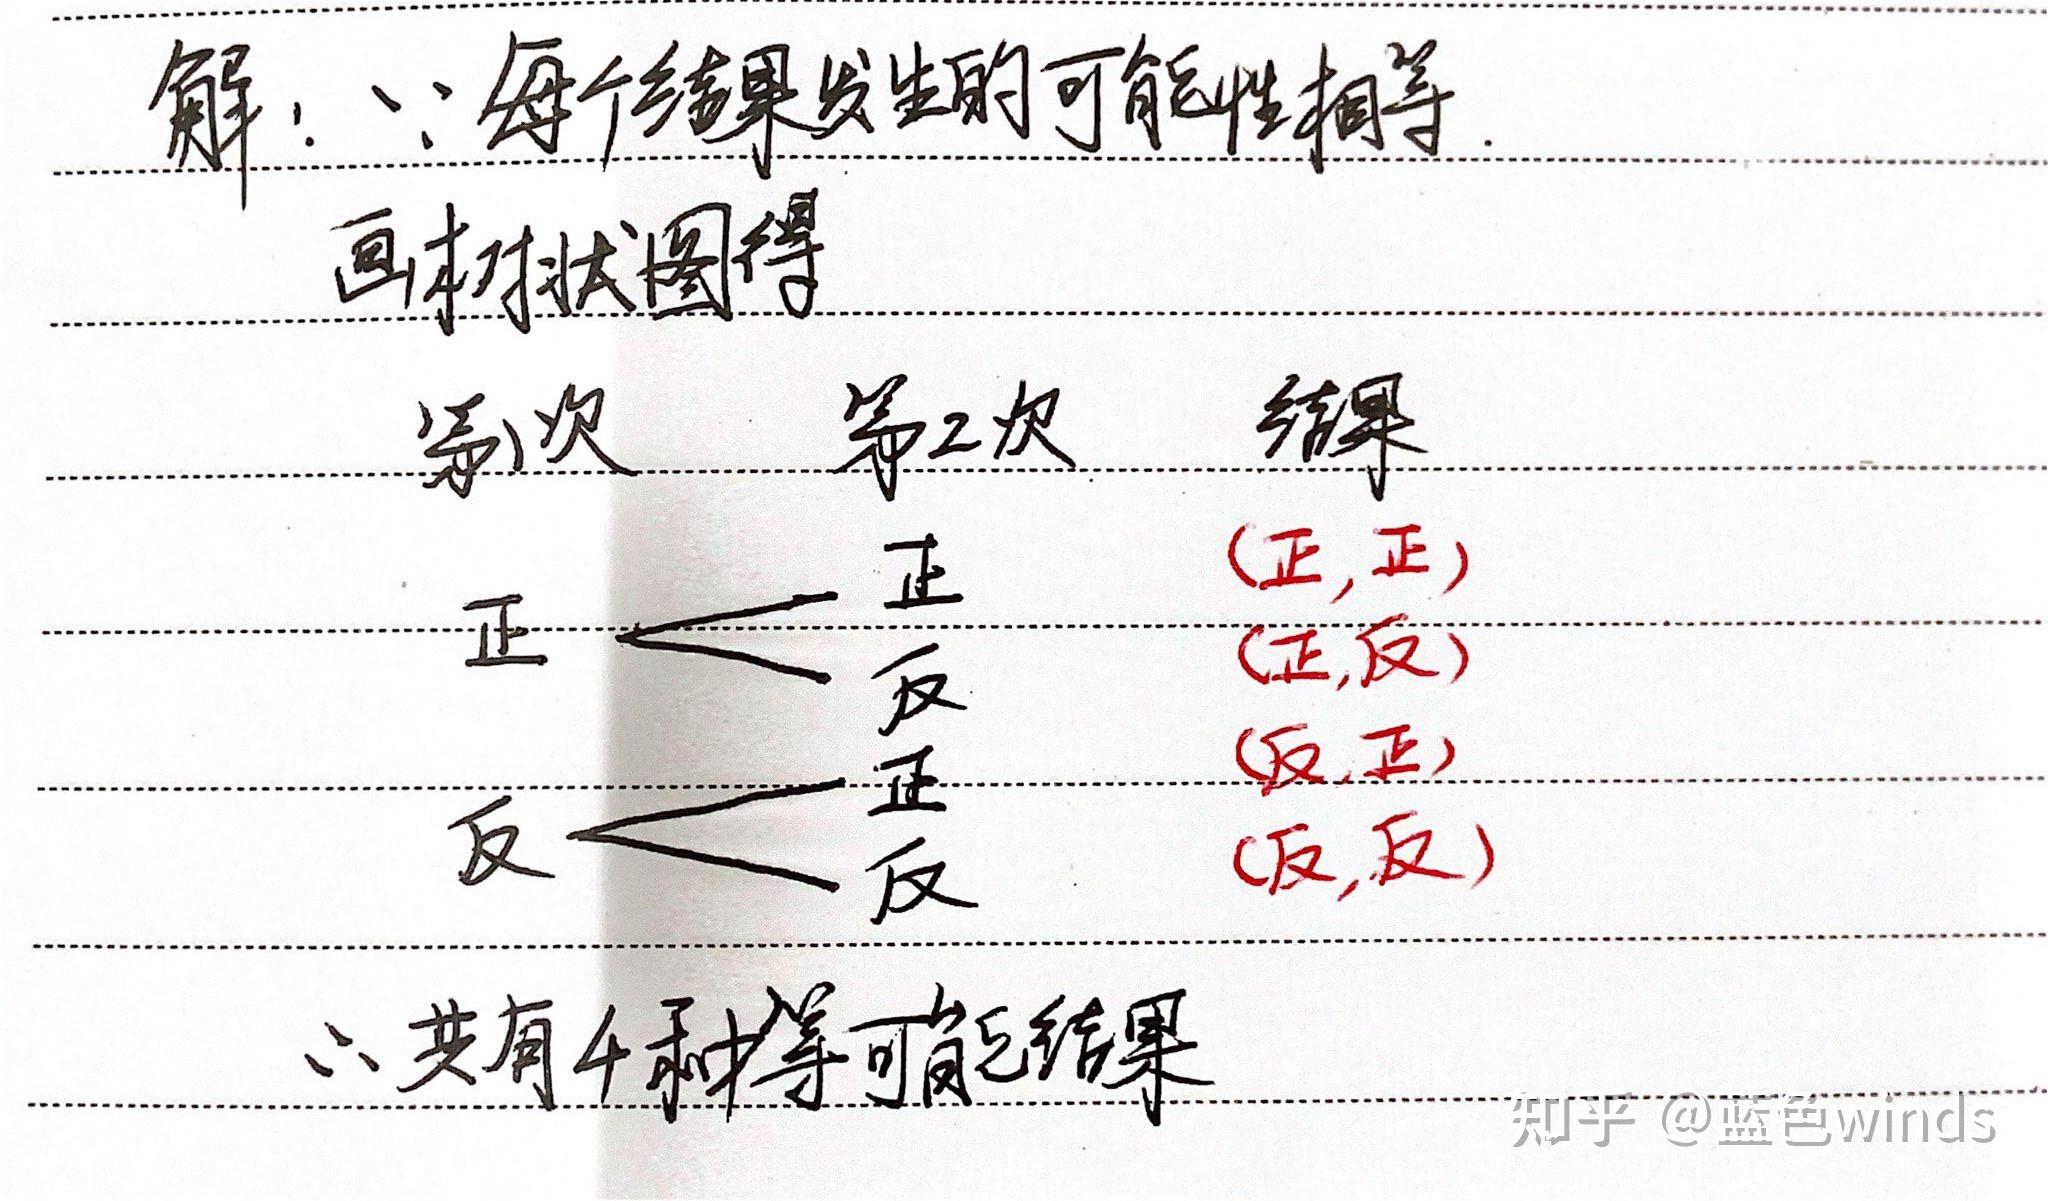 解：∵每个结果发生的可能性相等.
画树状图得
第1次 第2次 结果
正 正 (正,正)
反 (正,反)
反 正 (反,正)
反 (反,反)
∴共有4种等可能结果
知乎 @蓝色winds